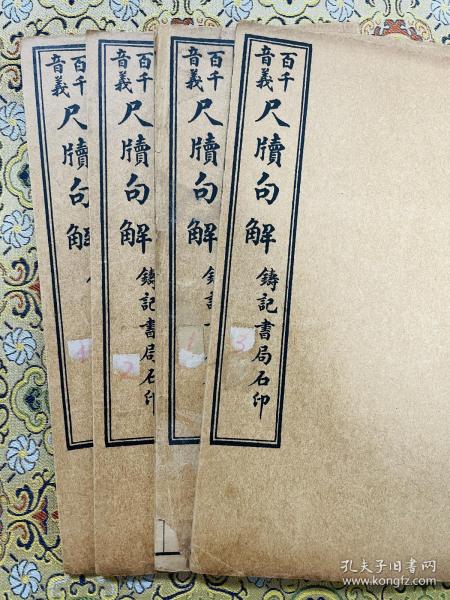 百千
音義
尺牘句解
鑄記書局石印
3
百千
音義
尺牘句解
鑄記
1
百千
音義
尺牘句解
鑄記書局石印
2
百千
音義
尺牘句解
4
孔夫子旧书网
www.kongfz.com